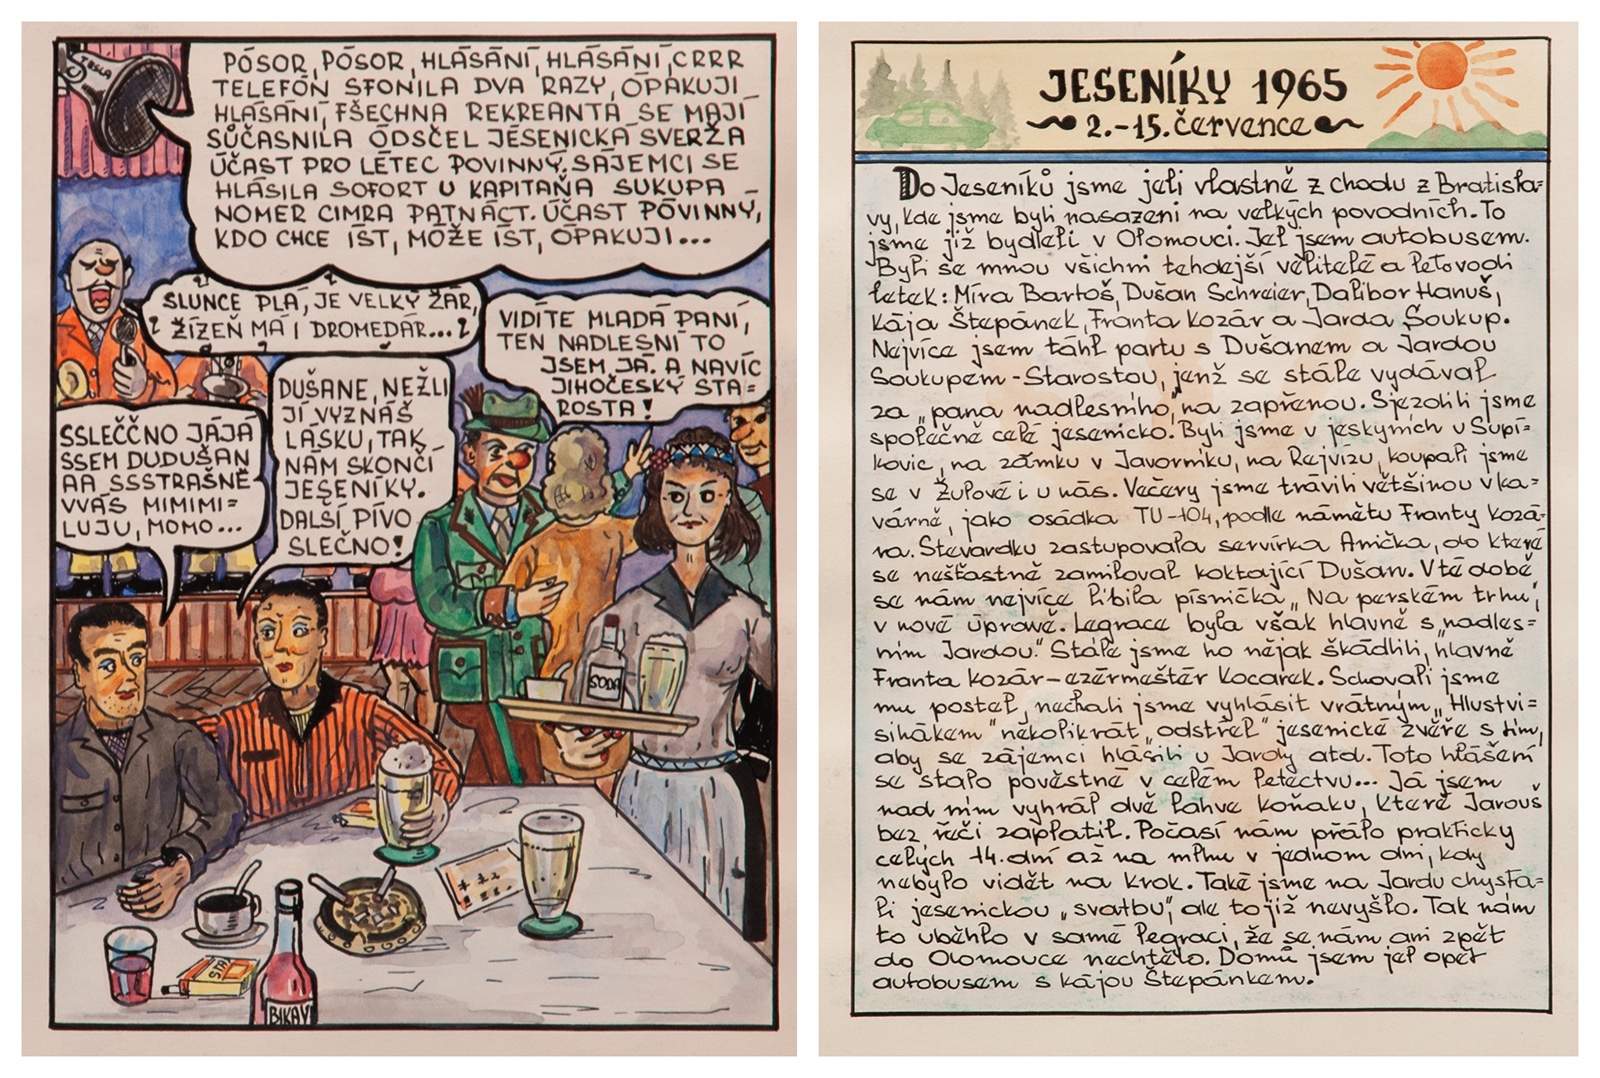 TESLA
PÓSOR, PÓSOR, HLÁSÁNÍ, HLÁSÁNÍ, CRRR
TELEFÓN SFONILA DVA RAZY, ÓPAKUJI
HLÁSÁNÍ, FŠECHNA REKREANTA SE MAJÍ
SŮČASNILA ÓDSČEL JÉSENICKÁ SVERŽA
ÚČAST PRO LÉTEC POVINNÝ. SÁJEMCI SE
HLÁSILA SOFORT U KAPITAŇA SUKUPA
NOMER CIMRA PATNÁCT. ÚČAST PÓVINNÝ,
KDO CHCE ÍST, MÓŽE ÍST, ÓPAKUJI...
SLUNCE PLÁ, JE VELKÝ ŽÁR,
ŽÍZEŇ MÁ I DROMEDÁR...
VIDÍTE MLADÁ PANÍ,
TEN NADLESNÍ TO
JSEM JÁ. A NAVÍC
JIHOČESKÝ STA=
ROSTA!
SSLEČČNO JÁJÁ
SSEM DUDUŠAN
AA SSSTRAŠNĚ
VVÁS MIMIMI=
LUJU, MOMO...
DUŠANE, NEŽLI
JÍ VYZNÁŠ
LÁSKU, TAK
NÁM SKONČÍ
JESENÍKY.
DALŠÍ PÍVO
SLEČNO!
SODA
BIKAV
JESENÍKY 1965
2.-15. července
Do Jeseníků jsme jeli vlastně z chodu z Bratisla=
vy, kde jsme byli nasazeni na velkých povodních. To
jsme již bydleli v Olomouci. Jel jsem autobusem.
Byli se mnou všichni tehdejší velitelé a letovodi
letek: Míra Bartoš, Dušan Schreier, Dalibor Hanuš,
Kája Štěpánek, Franta Kozár a Jarda Soukup.
Nejvíce jsem táhl partu s Dušanem a Jardou
Soukupem - Starostou, jenž se stále vydával
za „pana nadlesního" na zapřenou. Sjezdili jsme
společně celé jesenicko. Byli jsme v jeskyních v Supí=
kovic, na zámku v Javorníku, na Rejvízu, koupali jsme
se v Žulové i u nás. Večery jsme trávili většinou v ka=
várně, jako osádka TU-104, podle námětu Franty Kozá=
ra. Stevardku zastupovala servírka Anička, do které
se nešťastně zamiloval koktající Dušan. V té době
se nám nejvíce líbila písnička „Na perském trhu",
v nové úpravě. Legrace byla však hlavně s „nadles=
ním Jardou". Stále jsme ho nějak škádlili, hlavně
Franta Kozár - ezermeštér Kocarek. Schovali jsme
mu postel, nechali jsme vyhlásit vrátným „Hlustvi=
sihákem" několikrát „odstřel" jesenické zvěře s tím,
aby se zájemci hlásili u Jardy atd. Toto hlášení
se stalo pověstné v celém letectvu... Já jsem
nad ním vyhrál dvě lahve koňaku, které Jarouš
bez řeči zaplatil. Počasí nám přálo prakticky
celých 14. dní až na mlhu v jednom dni, kdy
nebylo vidět na krok. Také jsme na Jardu chysta=
li jesenickou „svatbu", ale to již nevyšlo. Tak nám
to uběhlo v samé legraci, že se nám ani zpět
do Olomouce nechtělo. Domů jsem jel opět
autobusem s Kájou Štěpánkem.